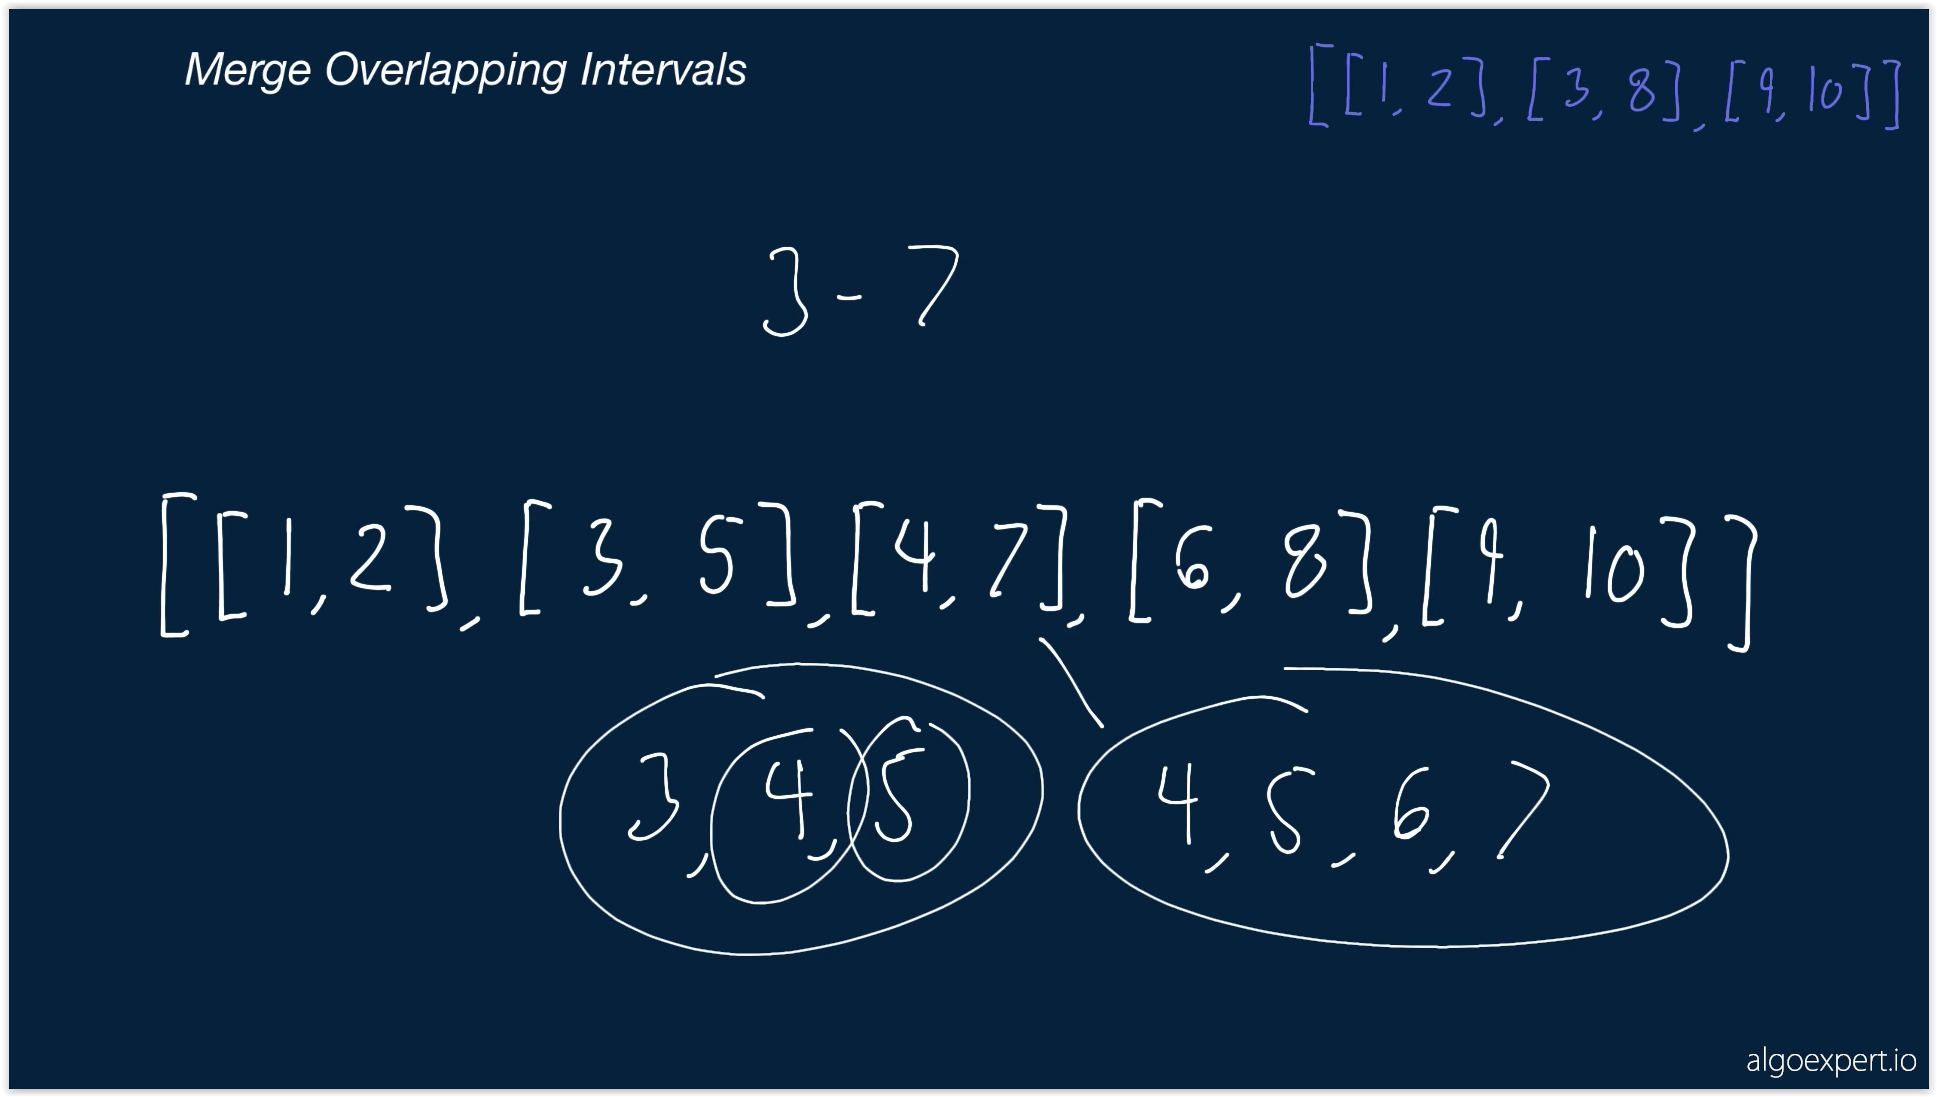 Merge Overlapping Intervals
[[1, 2], [3, 8], [9, 10]]
3 - 7
[[1,2], [3, 5], [4, 7], [6, 8], [9, 10]]
3, 4, 5
4, 5, 6, 7
algoexpert.io